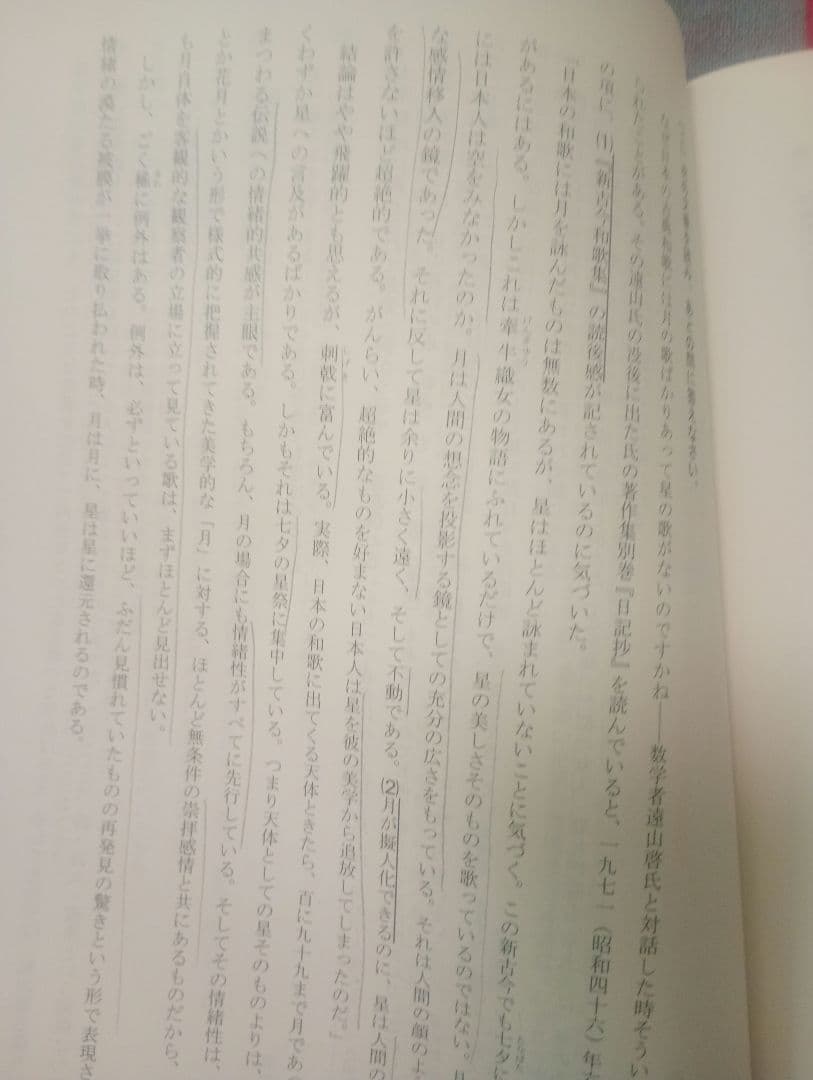 あとの問に答えなさい。
なぜ日本の古典和歌には月の歌ばかりあって星の歌がないのですかね――数学者遠山啓氏と対話した時そうい
られたことがある。その遠山氏の没後に出た氏の著作集別巻『日記抄』を読んでいると、一九七一（昭和四十六）年
の項に、⑴『新古今和歌集』の読後感が記されているのに気づいた。
「日本の和歌には月を詠んだものは無数にあるが、星はほとんど詠まれていないことに気づく。この新古今でも七夕に
があるにはある。しかしこれは牽牛織女の物語にふれているだけで、星の美しさそのものを歌っているのではない。
には日本人は空をみなかったのか。月は人間の想念を投影する鏡としての充分の広さをもっている。それは人間の顔の
な感情移入の鏡であった。それに反して星は余りに小さく遠く、そして不動である。⑵月が擬人化できるのに、星は人間の
を許さないほど超絶的である。がんらい、超絶的なものを好まない日本人は星を彼の美学から追放してしまったのだ。」
結論はやや飛躍的とも思えるが、刺戟に富んでいる。実際、日本の和歌に出てくる天体ときたら、百に九十九まで月であ
くわずか星への言及があるばかりである。しかもそれは七夕の星祭に集中している。つまり天体としての星そのものよりは、
まつわる伝説への情緒的共感が主眼である。もちろん、月の場合にも情緒性がすべてに先行している。そしてその情緒性は、
とか花月とかいう形で様式的に把握されてきた美学的な「月」に対する、ほとんど無条件の崇拝感情と共にあるものだから、
も月自体を客観的な観察者の立場に立って見ている歌は、まずほとんど見出せない。
しかし、ごく稀に例外はある。例外は、必ずといっていいほど、ふだん見慣れていたものの再発見の驚きという形で表現さ
情緒の漠たる被膜が一挙に取り払われた時、月は月に、星は星に還元されるのである。